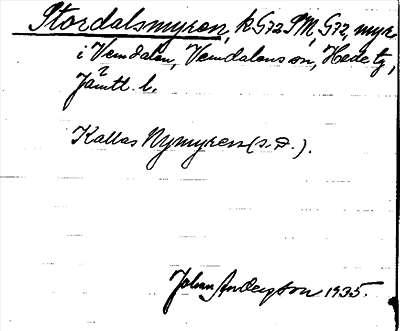 Stordalsmyren, k G72 SM, G72, myr,
i Vemdalen, Vemdalens sn, Hede tg,
Jämtl. l.
Kallas Nymyren (s. d.).
Johan Anderson 1935.